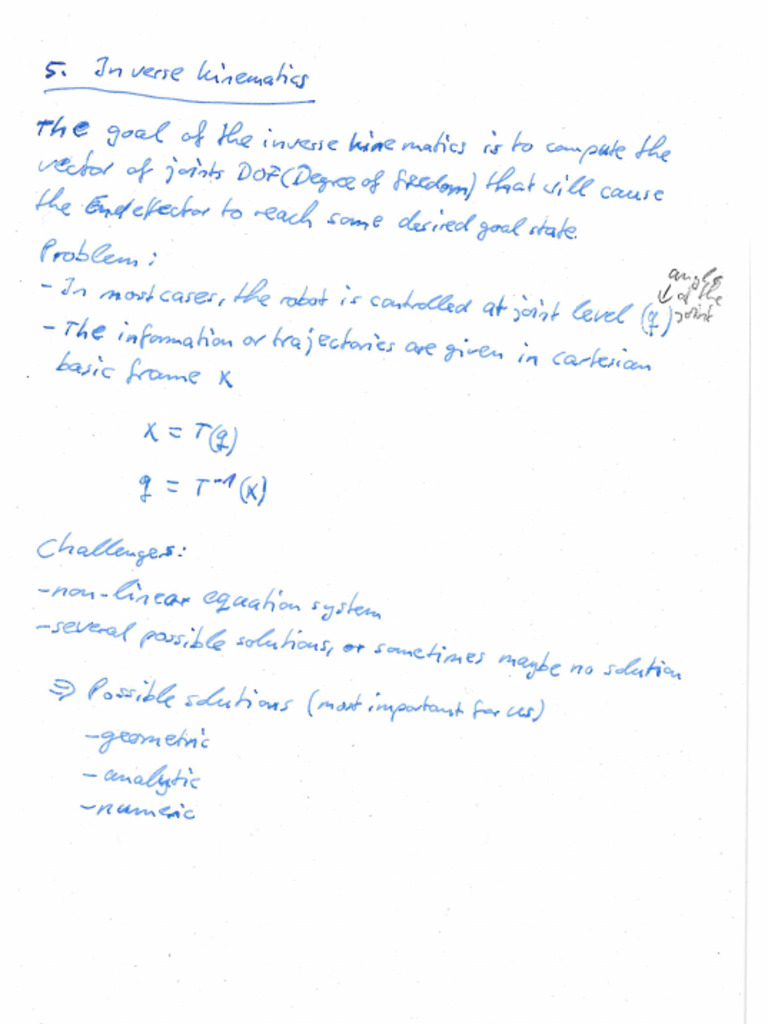 5. Inverse kinematics
The goal of the inverse kinematics is to compute the
vector of joints DOF (Degree of freedom) that will cause
the Endeffector to reach some desired goal state.
Problem:
- In most cases, the robot is controlled at joint level (q)
angle
↓ of the
joint
- The information or trajectories are given in cartesian
basic frame x
x = T(q)
q = T⁻¹(x)
Challenges:
- non-linear equation system
- several possible solutions, or sometimes maybe no solution
⇒ Possible solutions (most important for us)
- geometric
- analytic
- numeric